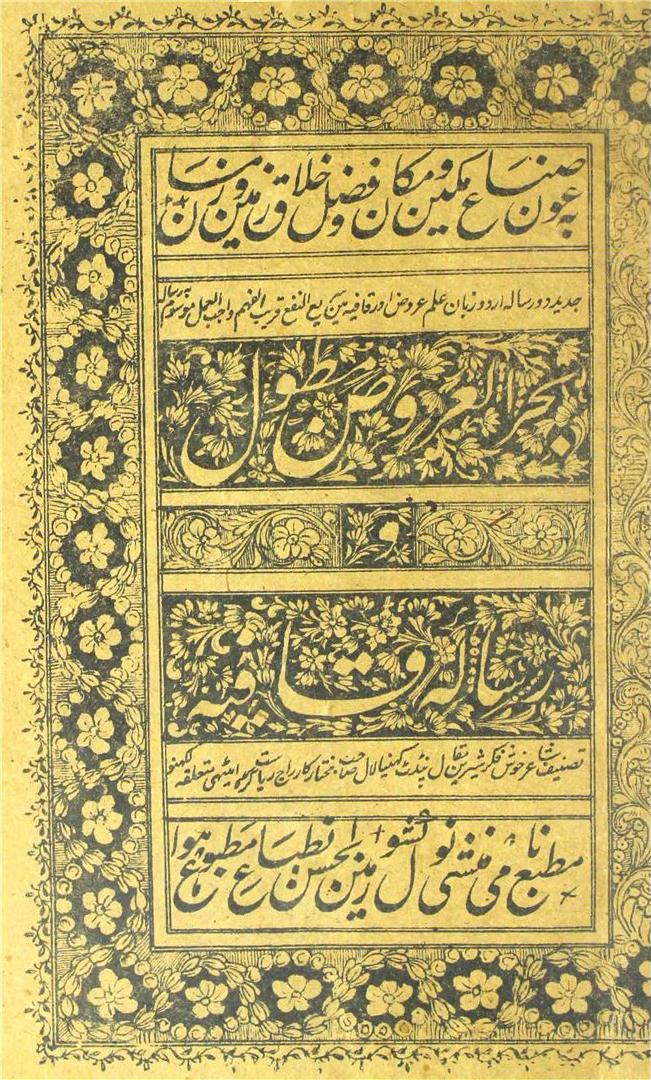 بعون صناع مکین و مکان و فضل خلاق زمین و زمان
جدید دو رساله اردو زبان علم عروض اور قافیه مین سریع النفع قریب الفهم واجب العمل موسوم به رساله
بحر العروض مطول
و
رساله قافیه
تصنیف شاعر خوش فکر شیرین مقال پنڈت کنھیالال صاحب مختار کار راج ریاست امیٹھی متعلقه لکھنؤ
مطبع نامی منشی نولکشور مین بحسن انطباع مطبوع ہوا